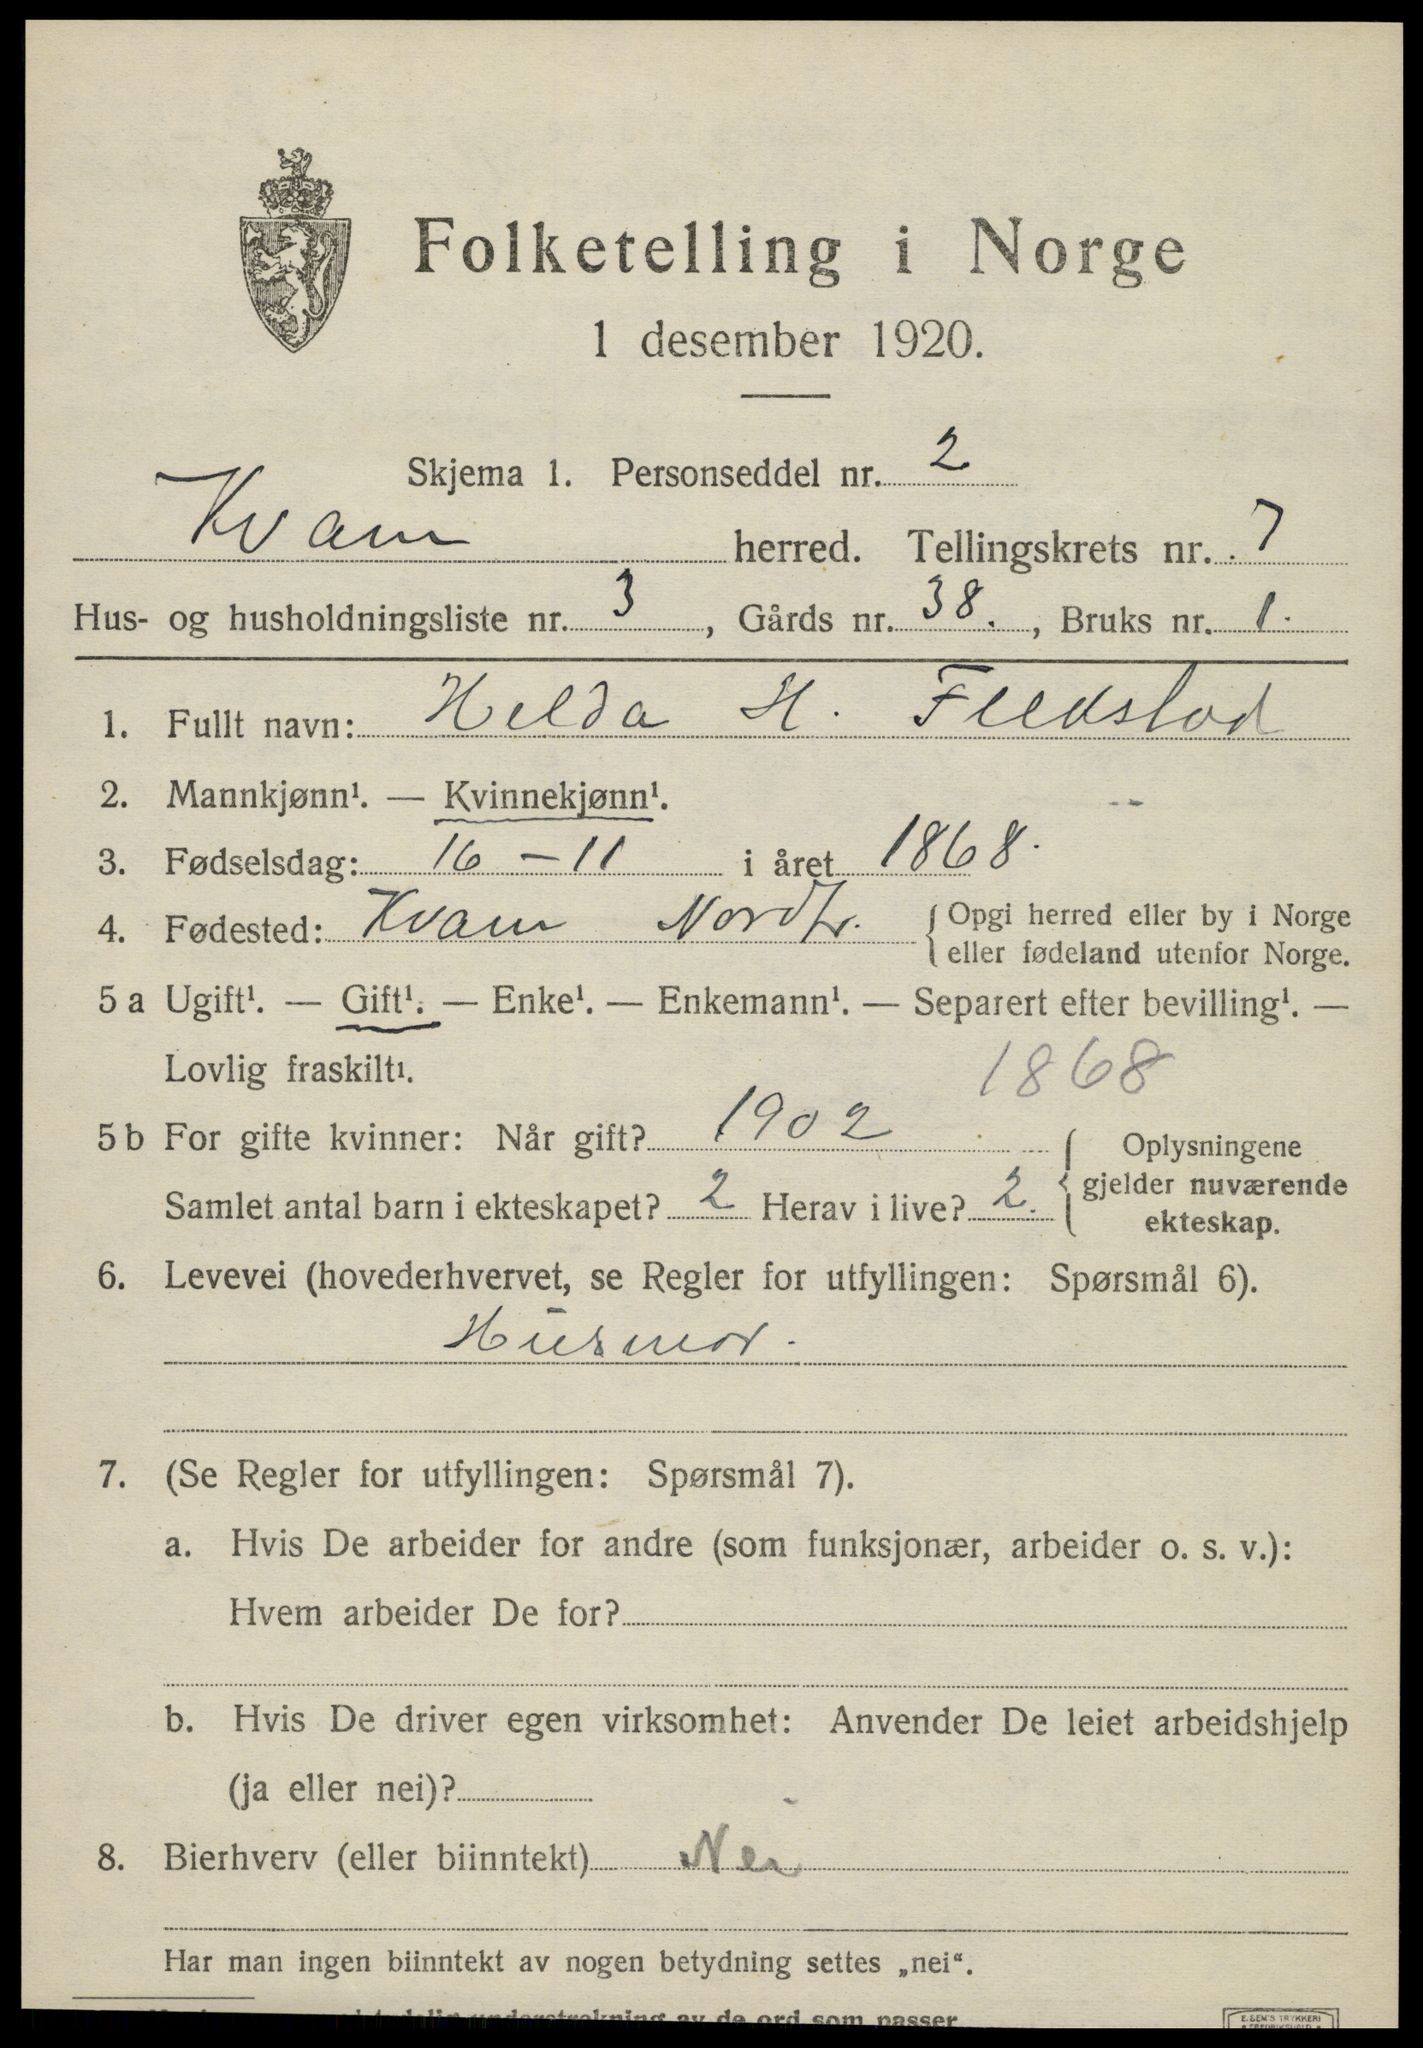 Folketelling i Norge
1 desember 1920.
Skjema 1. Personseddel nr. 2
Kvam herred. Tellingskrets nr. 7
Hus- og husholdningsliste nr. 3, Gårds nr. 38., Bruks nr. 1.
1. Fullt navn: Helda H.
2. Mannkjønn¹. — Kvinnekjønn¹.
3. Fødselsdag: 16 – 11 i året 1868.
4. Fødested: Kvam Nordtr. { Opgi herred eller by i Norge
eller fødeland utenfor Norge.
5 a Ugift¹. — Gift¹. — Enke¹. — Enkemann¹. — Separert efter bevilling¹. —
Lovlig fraskilt¹.
1868
5 b For gifte kvinner: Når gift? 1902
Samlet antal barn i ekteskapet? 2 Herav i live? 2.
{ Oplysningene
gjelder nuværende
ekteskap.
6. Levevei (hovederhvervet, se Regler for utfyllingen: Spørsmål 6).
Husmor.
7. (Se Regler for utfyllingen: Spørsmål 7).
a. Hvis De arbeider for andre (som funksjonær, arbeider o. s. v.):
Hvem arbeider De for?
b. Hvis De driver egen virksomhet: Anvender De leiet arbeidshjelp
(ja eller nei)?
8. Bierhverv (eller biinntekt) Nei
Har man ingen biinntekt av nogen betydning settes „nei“.
understrekning av de ord som passer
E. SEM'S TRYKKERI
FREDRIKSHALD